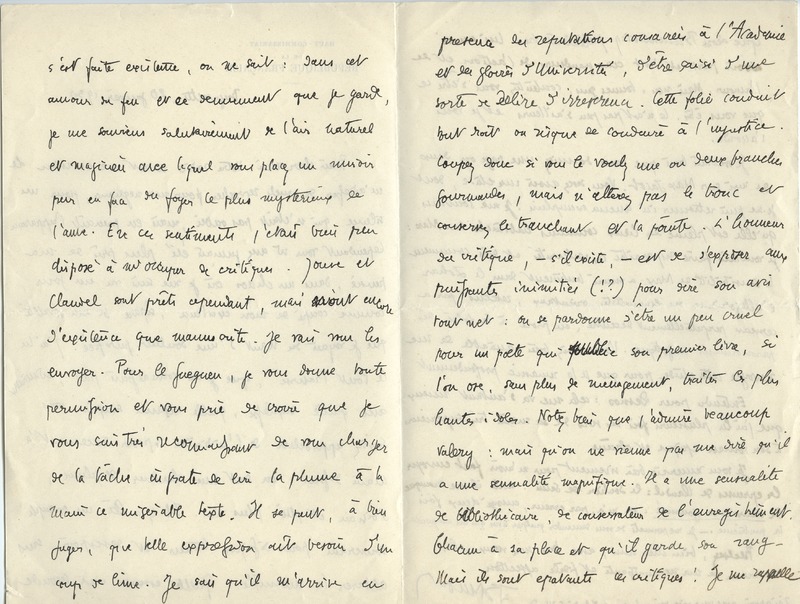 s'est faite existence, on ne sait : dans cet
amour de feu et ce dénuement que je garde,
je me souviens salutairement de l'air naturel
et magicien avec lequel vous placez un miroir
pur en face du foyer le plus mystérieux de
l'âme. En ces sentiments, j'étais bien peu
disposé à m'occuper de critiques. Jouve et
Claudel sont prêts cependant, mais n'ont encore
d'existence que manuscrite. Je vais vous les
envoyer. Pour le Gueguen, je vous donne toute
permission et vous prie de croire que je
vous suis très reconnaissant de vous charger
de la tâche ingrate de lire la plume à la
main ce misérable texte. Il se peut, à bien
juger, que telle expression ait besoin d'un
coup de lime. Je sais qu'il m'arrive en
présence des réputations consacrées à l'Académie
et des gloires d'Université, d'être saisi d'une
sorte de délire d'irrévérence. Cette folie conduit
tout droit ou risque de conduire à l'injustice.
Coupez donc si vous le voulez une ou deux branches
gourmandes, mais n'altérez pas le tronc et
conservez le tranchant et la pointe. L'honneur
du critique, – s'il existe, – est de s'exposer aux
puissantes inimitiés (!?) pour dire son avis
tout net : on se pardonne d'être un peu cruel
pour un poète qui publie son premier livre, si
l'on ose, sans plus de ménagement, traiter les plus
hautes idoles. Notez bien que j'admire beaucoup
Valéry : mais qu'on ne vienne pas me dire qu'il
a une sensualité magnifique. Il a une sensualité
de bibliothécaire, de conservateur de l'enregistrement.
Chacun à sa place et qu'il garde son rang –
Mais ils sont épatants ces critiques ! Je me rappelle